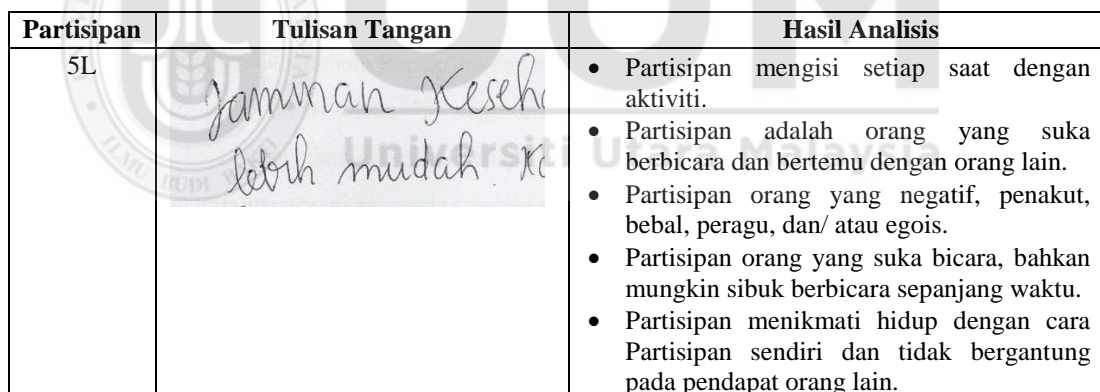 Partisipan Tulisan Tangan Hasil Analisis
5L
Jaminan Keseh
lebih mudah Ka
• Partisipan mengisi setiap saat dengan
aktiviti.
• Partisipan adalah orang yang suka
berbicara dan bertemu dengan orang lain.
• Partisipan orang yang negatif, penakut,
bebal, peragu, dan/ atau egois.
• Partisipan orang yang suka bicara, bahkan
mungkin sibuk berbicara sepanjang waktu.
• Partisipan menikmati hidup dengan cara
Partisipan sendiri dan tidak bergantung
pada pendapat orang lain.
UUM
Universiti Utara Malaysia
ILMU BUDI